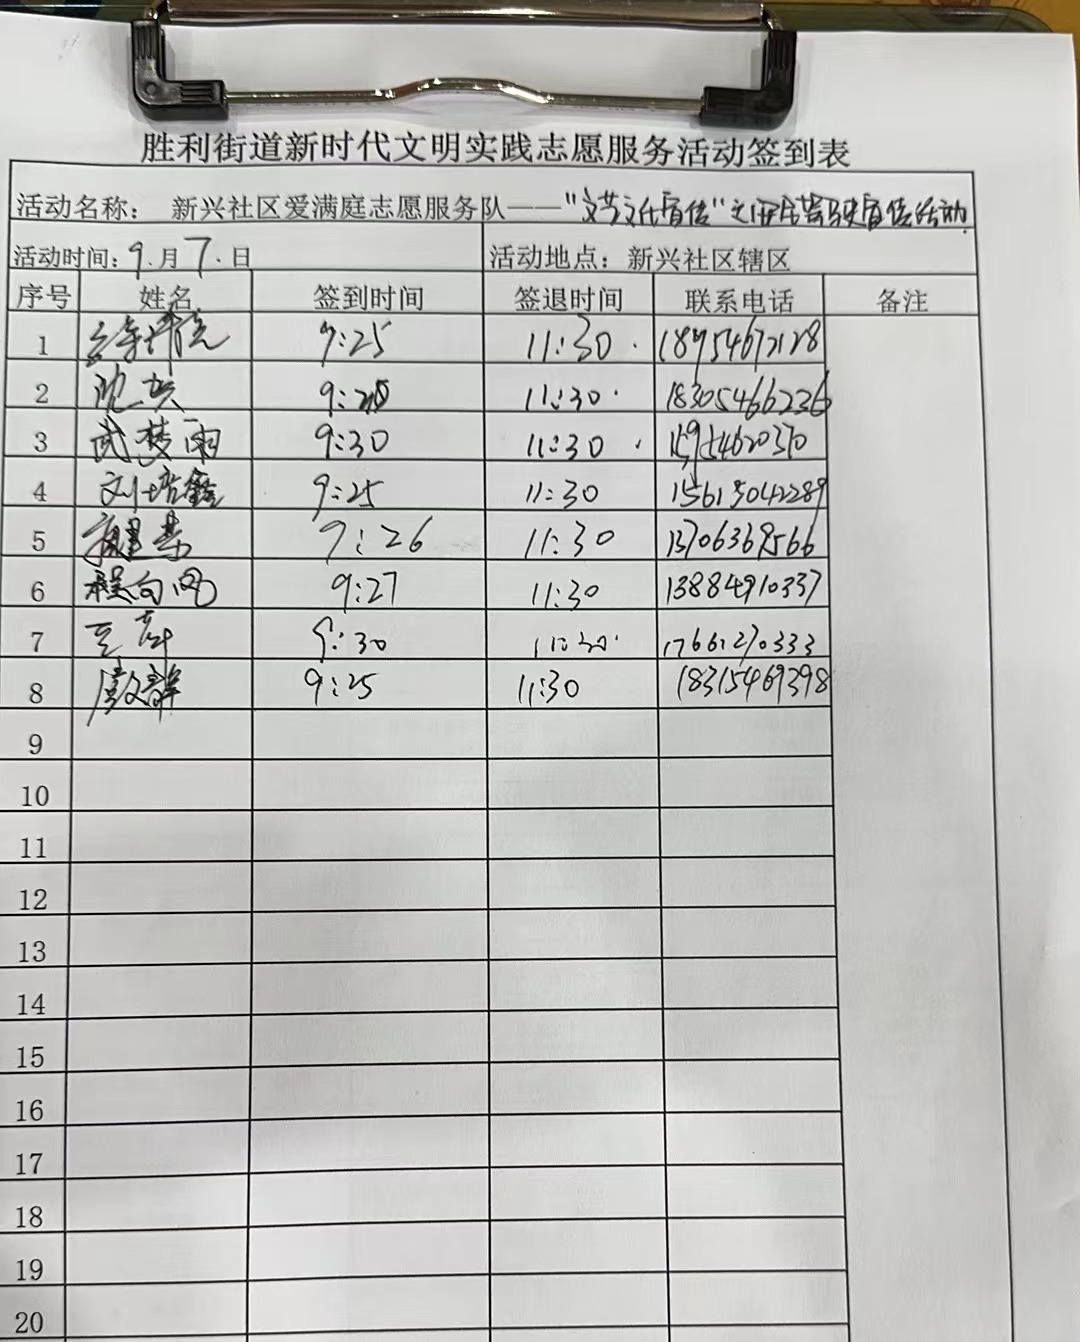 胜利街道新时代文明实践志愿服务活动签到表
活动名称： 新兴社区爱满庭志愿服务队——“文艺文化宣传”之酒后驾驶宣传活动
活动时间: 9.月7.日 活动地点：新兴社区辖区
序号 姓名 签到时间 签退时间 联系电话 备注
1 9:25 11:30 18954672128
2 11:30 18305466236
3 武梦雨 9:30 11:30 15954620370
4 刘培鑫 9:25 11:30 15615042289
5 9:26 11:30 13706369566
6 程向鸿 9:27 11:30 13884910337
7 9:30 11:30 17661270333
8 9:25 11:30 18315469398
9
10
11
12
13
14
15
16
17
18
19
20